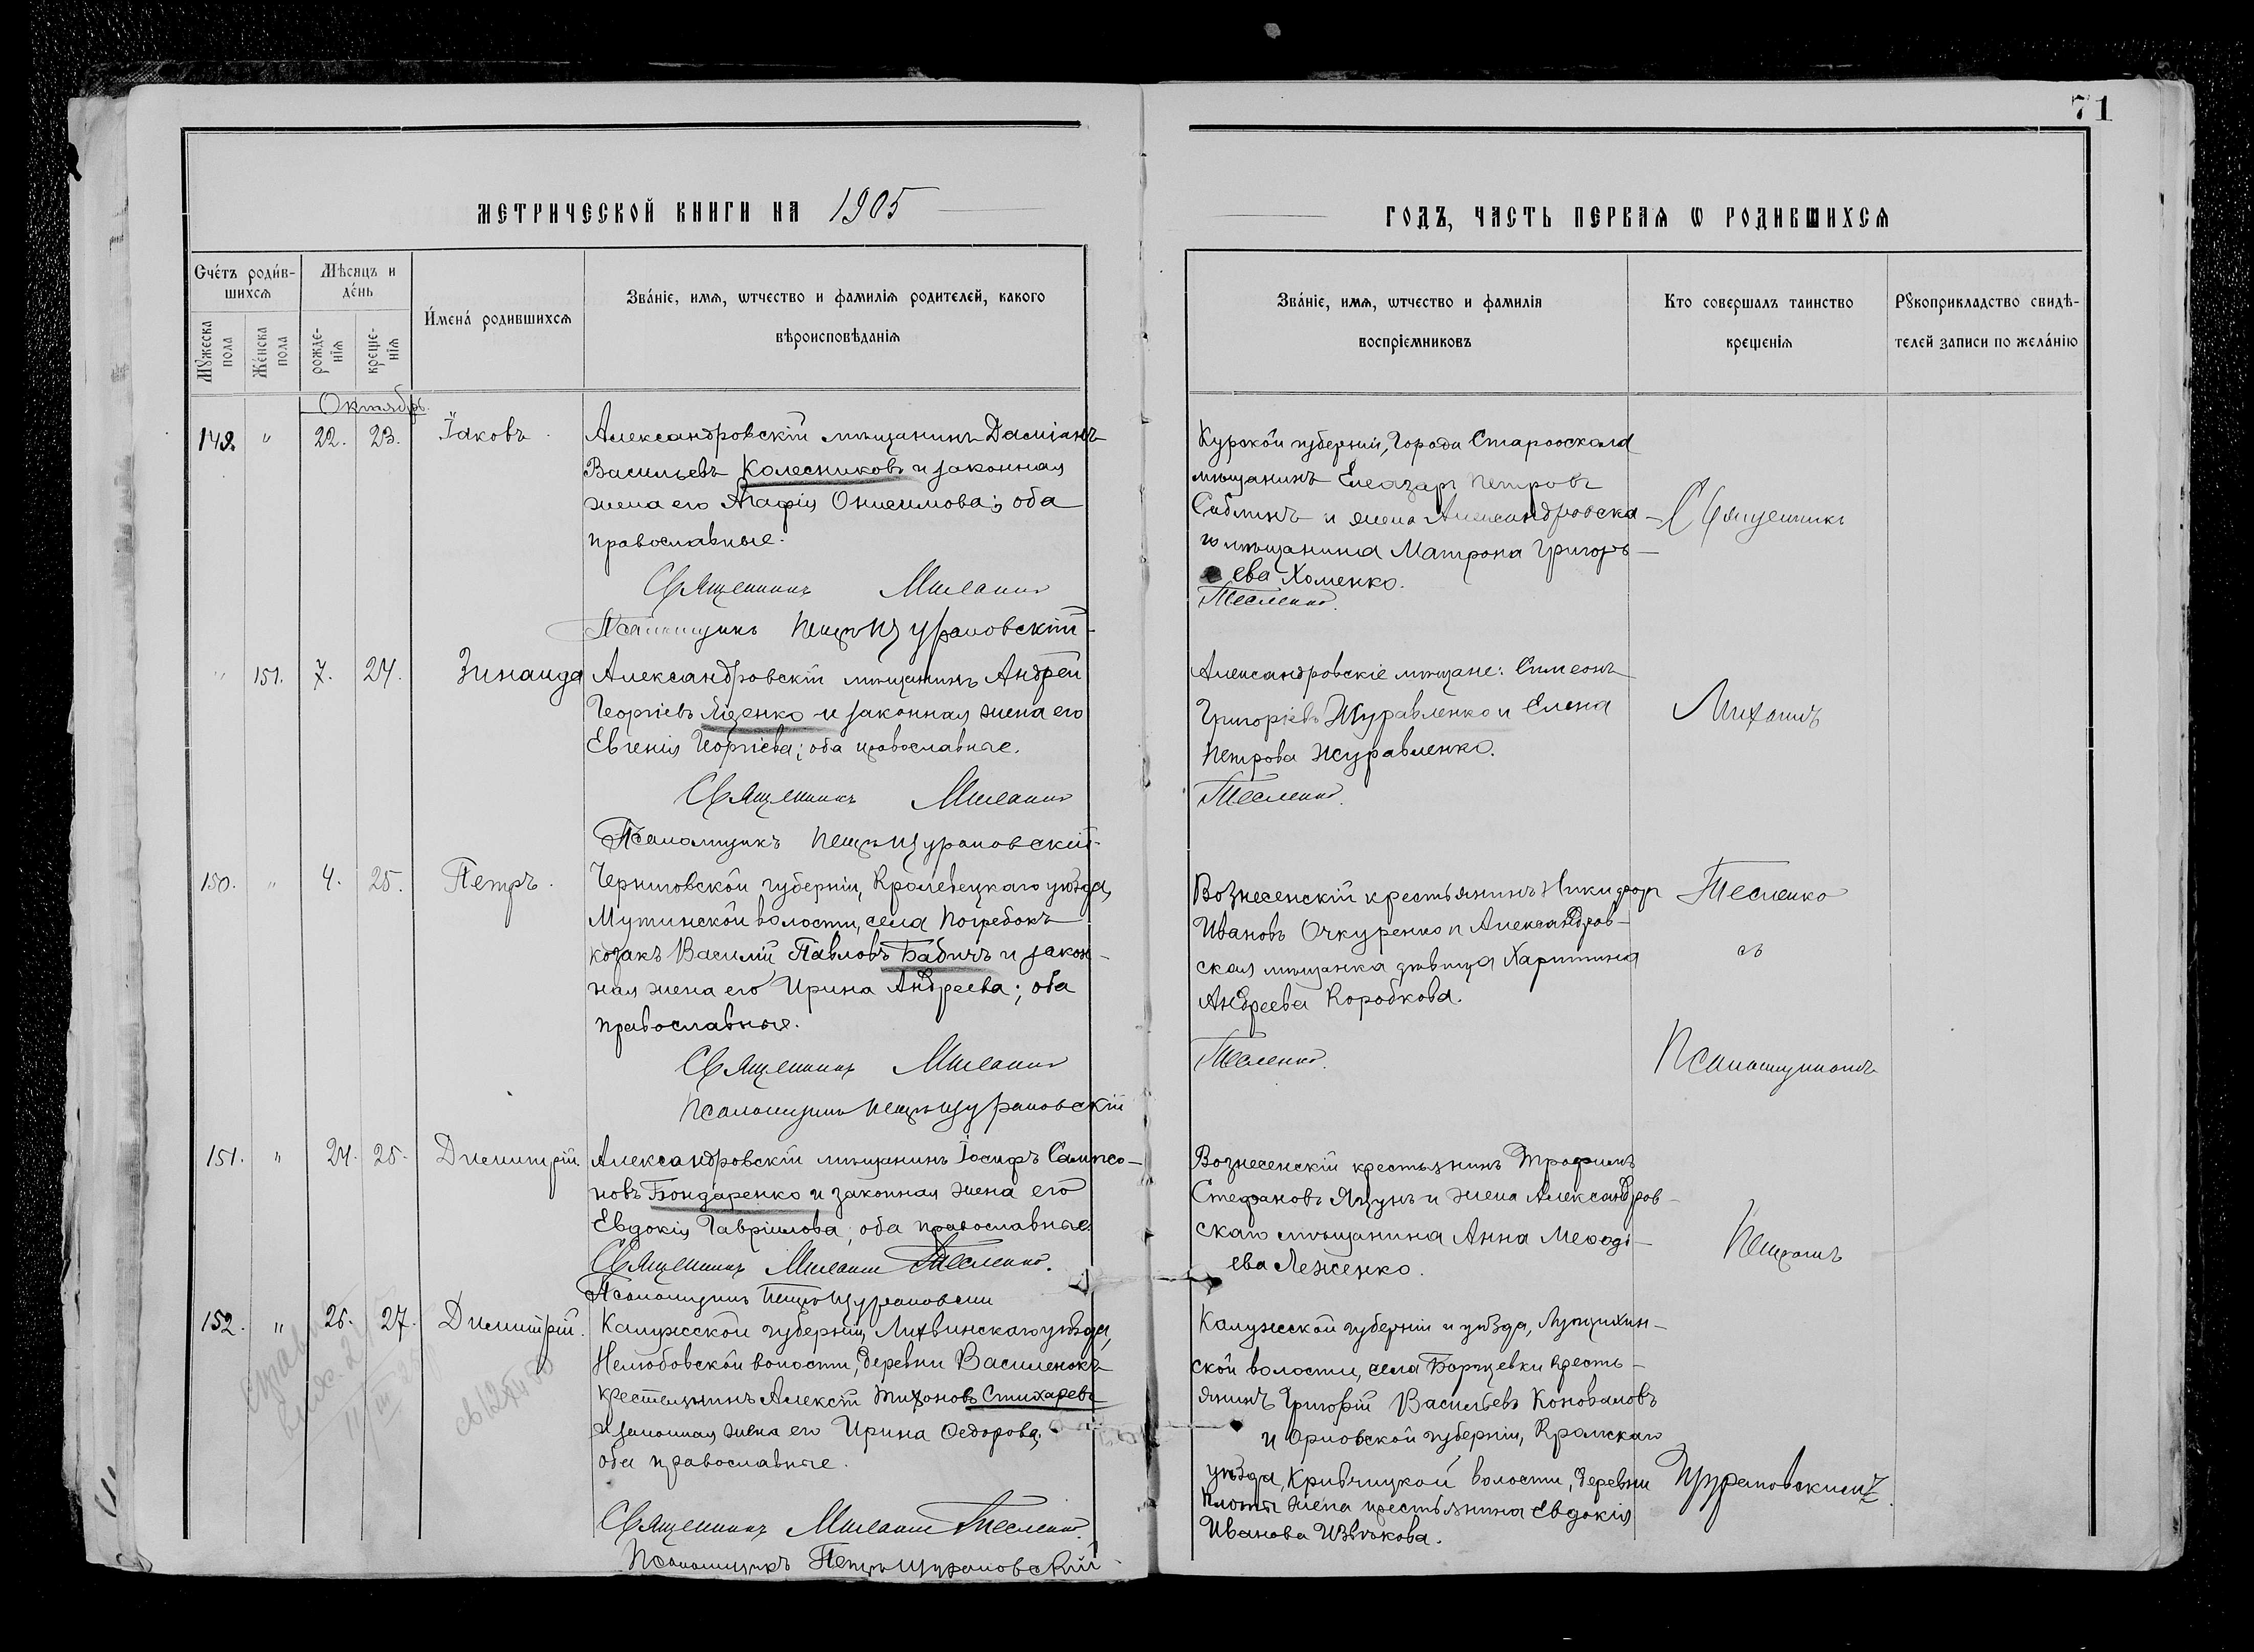 71
МЕТРИЧЕСКОЙ КНИГИ НА 1905
ГОДЪ, ЧАСТЬ ПЕРВАЯ Ѡ РОДИВШИХСЯ
Счéтъ роди́в-
шихся
Мужеска
пола
Жéнска
пола
Мѣсяцъ и
дéнь
рожде-
нія
креще-
нія
И́мена́ родившихся
Зва́ніе, имя, ѡтчество и фамилія родителей, какого
вѣроисповѣданія
Зва́ніе, имя, ѡтчество и фамилія
воспріемниковъ
Кто совершалъ таинство
крещенія
Рꙋкоприкладство свидѣ-
телей записи по жела́нію
Октябрь.
149. " 22. 23. Іаковъ.
Александровскій мѣщанинъ Даміанъ
Васильевъ Колесниковъ и законная
жена его Агафія Онисимова; оба
православные.
Священникъ Михаилъ
Псаломщикъ Петръ Щурановскій
Курской губерніи, Города Старооскола
мѣщанинъ Елеазаръ Петровъ
и жена Александровска-
го мѣщанина Матрона Григорь-
ева Хоменко.
Тесленко.
Священникъ
" 151. 7. 24. Зинаида
Александровскій мѣщанинъ Андрей
Георгіевъ Лізенко и законная жена его
Евгенія Георгіева; оба православные.
Священникъ Михаилъ
Псаломщикъ Петръ Щурановскій
Александровскіе мѣщане: Симеонъ
Григоріевъ Журавленко и Елена
Петрова Журавленко.
Тесленко.
Михаилъ
150. " 4. 25. Петръ.
Черниговской губерніи, Кролевецкаго уѣзда,
Мутинской волости, села Погребокъ
козакъ Василій Павловъ Бабичъ и закон-
ная жена его Ирина Андреева; оба
православные.
Священникъ Михаилъ
Псаломщикъ Петръ Щурановскій
Вознесенскій крестьянинъ Никифоръ
Ивановъ Очкуренко и Александров-
ская мѣщанка дѣвица Харитина
Андреева Коробкова.
Тесленко.
Тесленко
съ
Псаломщикомъ
151. " 24. 25. Димитрій.
Александровскій мѣщанинъ Іосифъ Сампсо-
новъ Бондаренко и законная жена его
Евдокія Гавріилова; оба православные.
Священникъ Михаилъ Тесленко.
Псаломщикъ Петръ Щурановскій
Вознесенскій крестьянинъ Трофимъ
Стефановъ Яцунъ и жена Александров-
скаго мѣщанина Анна Меѳоді-
ева Леженко.
Петромъ
152. " 26. 27. Димитрій.
Калужской губерніи, Лихвинскаго уѣзда,
Нелюбовской волости, деревни Василенокъ
крестьянинъ Алексій Тихоновъ Стихаревъ
и законная жена его Ирина Ѳедорова;
оба православные.
Священникъ Михаилъ Тесленко.
Псаломщикъ Петръ Щурановскій
Калужской губерніи и уѣзда,
ской волости, села Борщевки кресть-
янинъ Григорій Васильевъ Коноваловъ
и Орловской губерніи, Кромскаго
уѣзда, Кривчицкой волости, деревни
жена крестьянина Евдокія
Иванова Извѣкова.
Щурановскимъ.